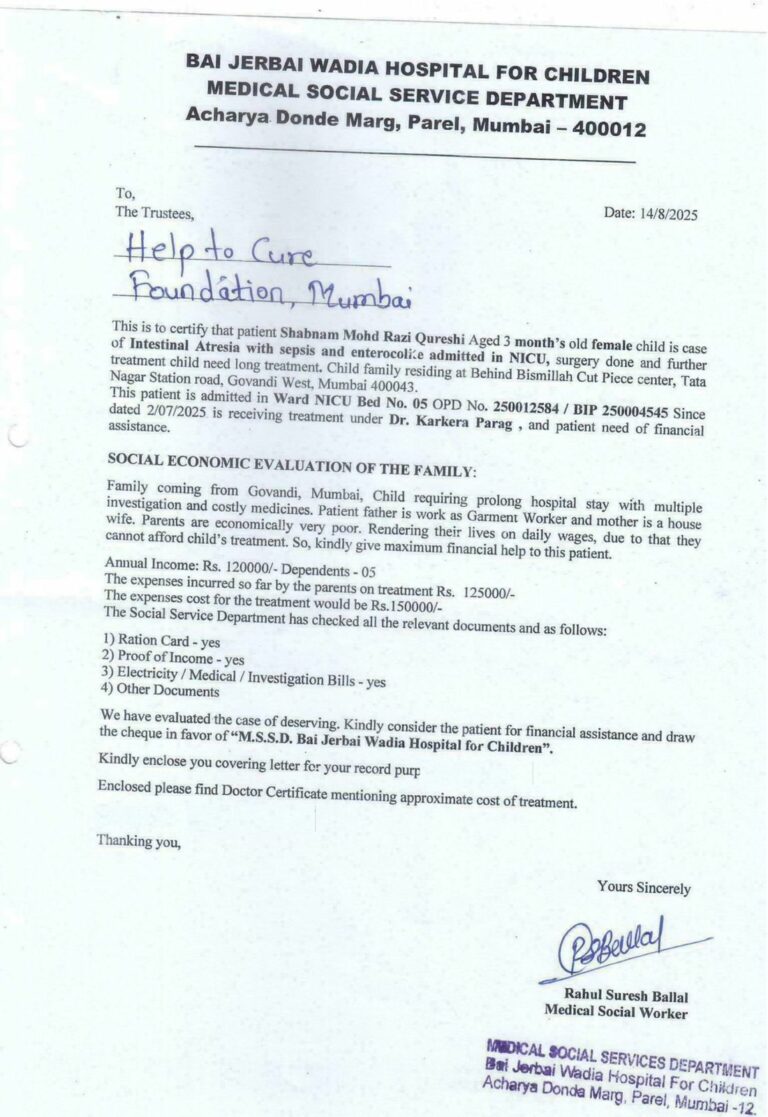 BAI JERBAI WADIA HOSPITAL FOR CHILDREN
MEDICAL SOCIAL SERVICE DEPARTMENT
Acharya Donde Marg, Parel, Mumbai – 400012
To,
The Trustees,
Date: 14/8/2025
Help to Cure
Foundation, Mumbai
This is to certify that patient Shabnam Mohd Razi Qureshi Aged 3 month's old female child is case
of Intestinal Atresia with sepsis and enterocolic admitted in NICU, surgery done and further
treatment child need long treatment. Child family residing at Behind Bismillah Cut Piece center, Tata
Nagar Station road, Govandi West, Mumbai 400043.
This patient is admitted in Ward NICU Bed No. 05 OPD No. 250012584 / BIP 250004545 Since
dated 2/07/2025 is receiving treatment under Dr. Karkera Parag , and patient need of financial
assistance.
SOCIAL ECONOMIC EVALUATION OF THE FAMILY:
Family coming from Govandi, Mumbai, Child requiring prolong hospital stay with multiple
investigation and costly medicines. Patient father is work as Garment Worker and mother is a house
wife. Parents are economically very poor. Rendering their lives on daily wages, due to that they
cannot afford child's treatment. So, kindly give maximum financial help to this patient.
Annual Income: Rs. 120000/- Dependents - 05
The expenses incurred so far by the parents on treatment Rs. 125000/-
The expenses cost for the treatment would be Rs.150000/-
The Social Service Department has checked all the relevant documents and as follows:
1) Ration Card - yes
2) Proof of Income - yes
3) Electricity / Medical / Investigation Bills - yes
4) Other Documents
We have evaluated the case of deserving. Kindly consider the patient for financial assistance and draw
the cheque in favor of “M.S.S.D. Bai Jerbai Wadia Hospital for Children”.
Kindly enclose you covering letter for your record purp
Enclosed please find Doctor Certificate mentioning approximate cost of treatment.
Thanking you,
Yours Sincerely
RSBallal
Rahul Suresh Ballal
Medical Social Worker
MEDICAL SOCIAL SERVICES DEPARTMENT
Bai Jerbai Wadia Hospital For Children
Acharya Donda Marg, Parel, Mumbai -12.